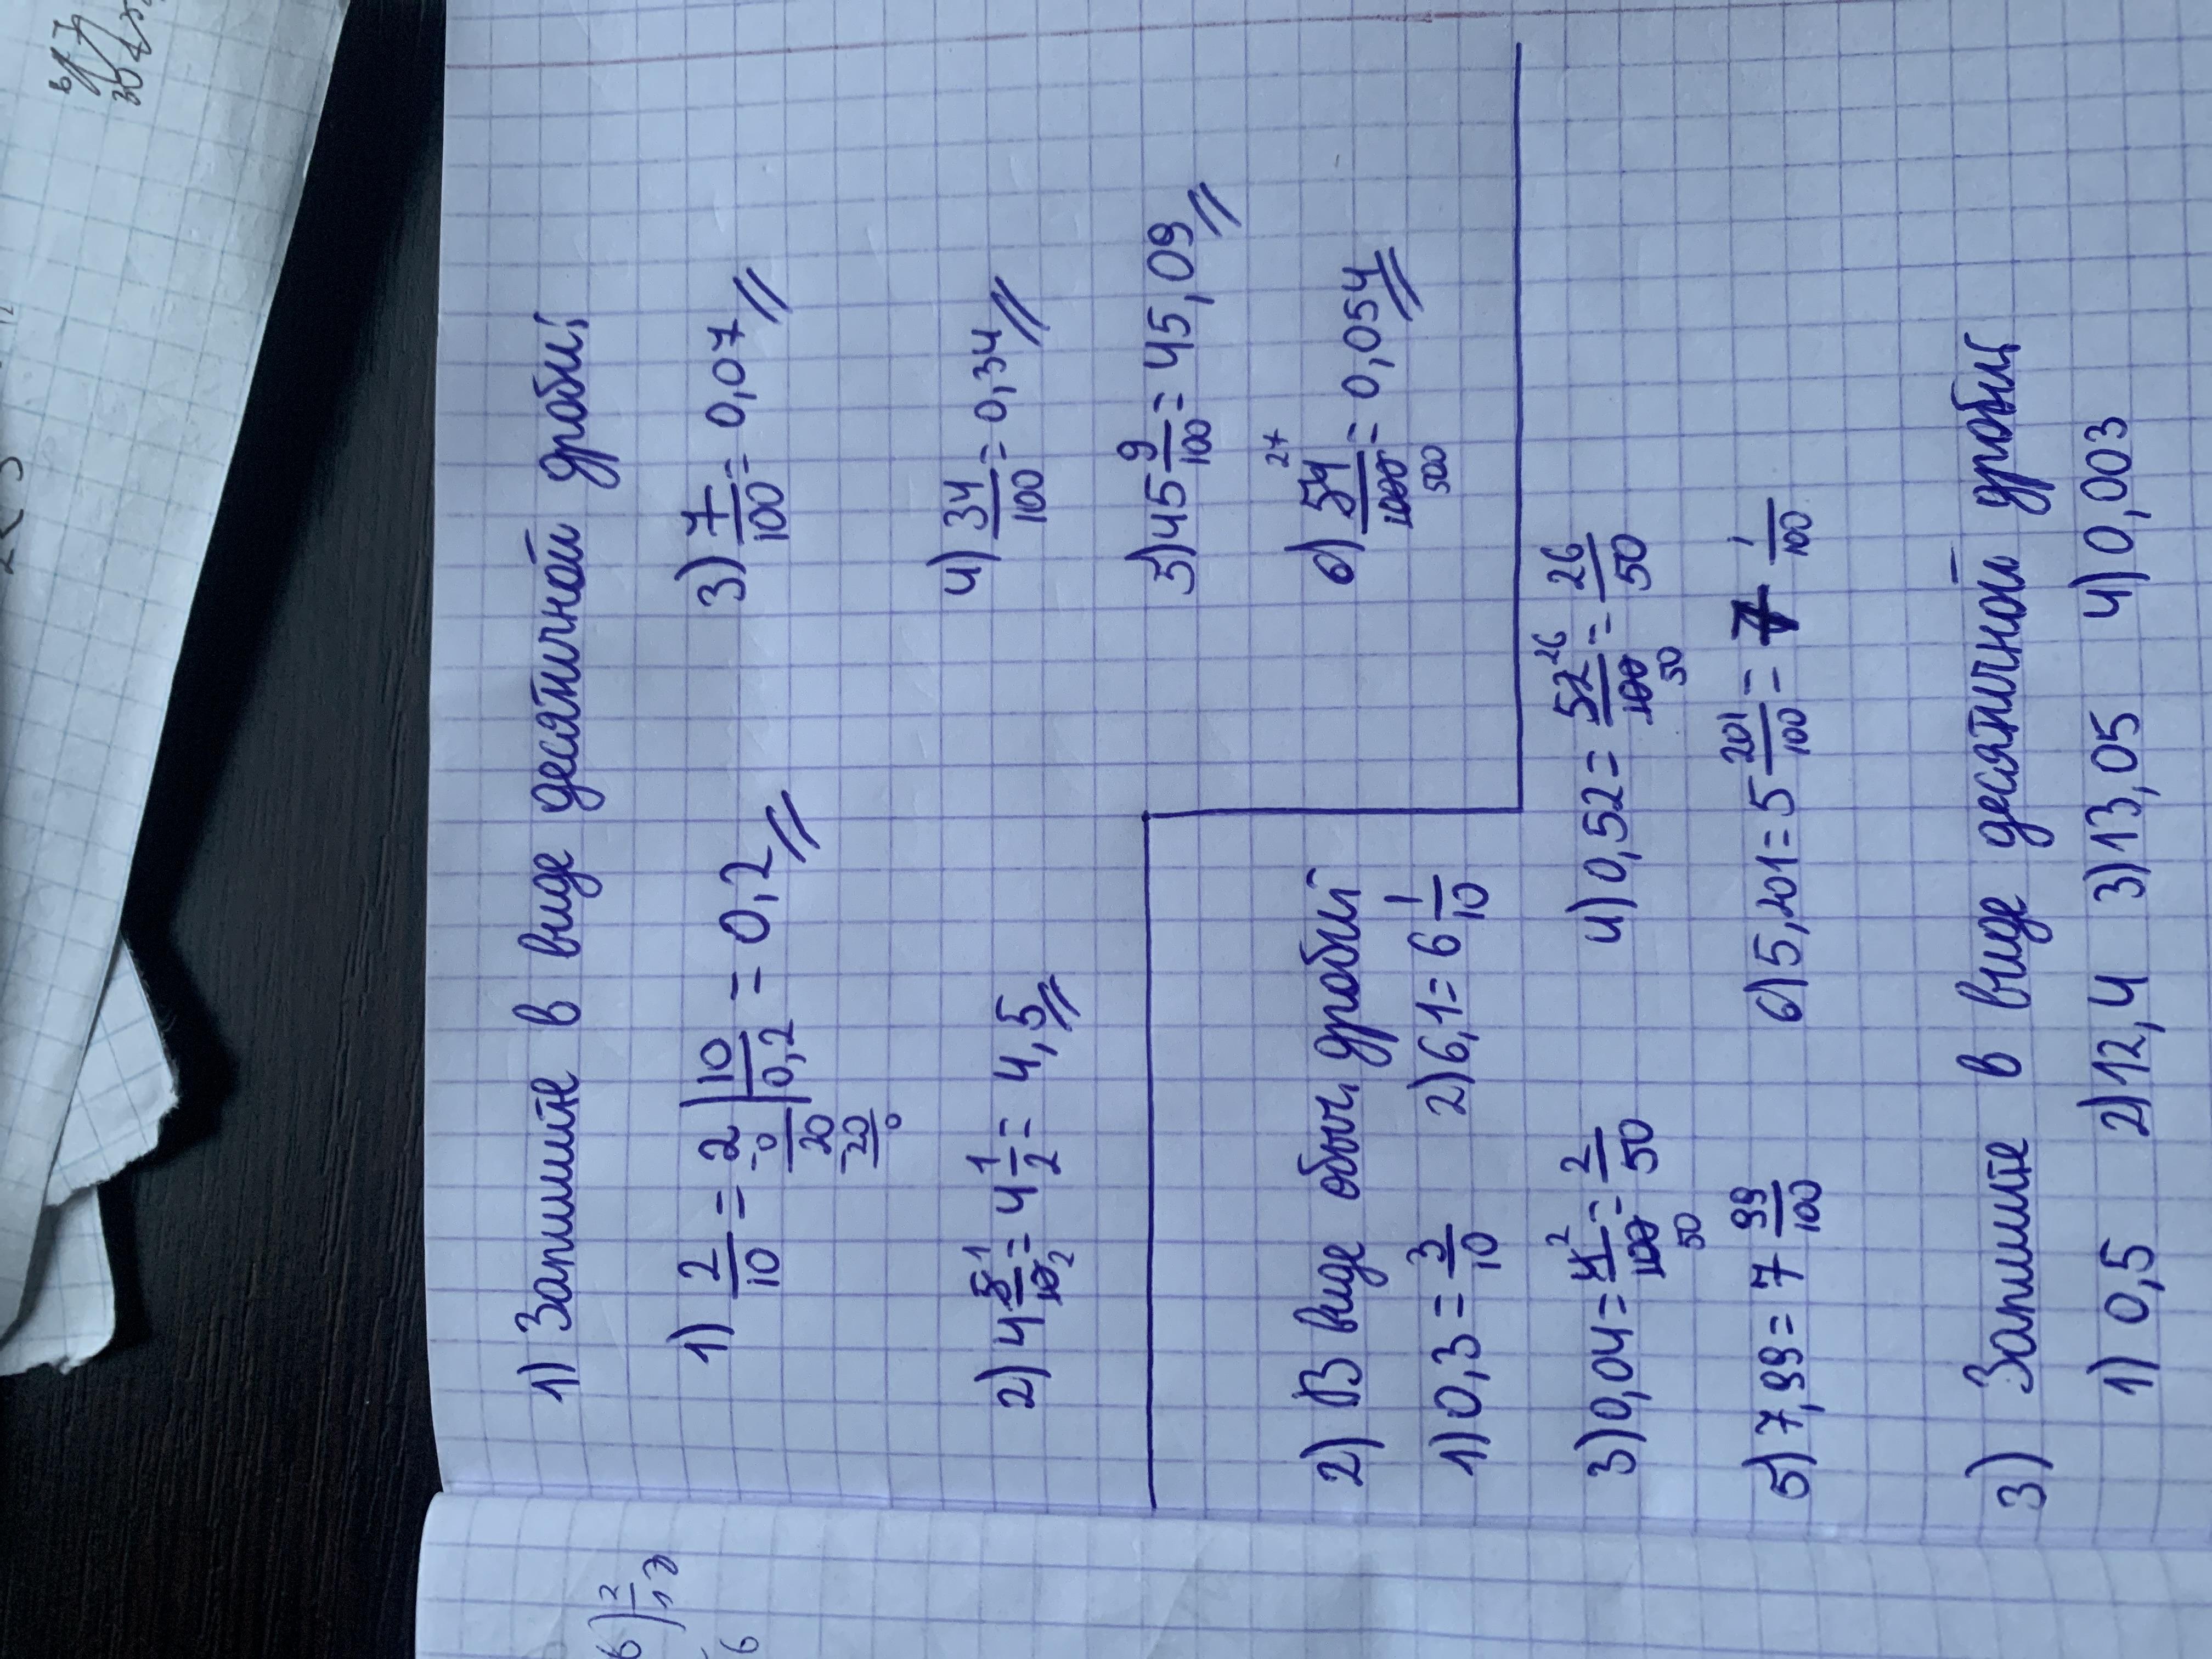 1) Запишите в виде десятичной дроби;
1) 2/10 = 2 | 10 = 0,2
0 0,2
20
20
0
3) 7/100 = 0,07
2) 4 5/10 1 2 = 4 1/2 = 4,5
4) 34/100 = 0,34
5) 45 9/100 = 45,09
6) 54/1000 27 500 = 0,054
2) В виде обыч, дробий
1) 0,3 = 3/10 2) 6,1 = 6 1/10
3) 0,04 = 4/100 2 50 = 2/50 4) 0,52 = 52/100 26 50 = 26/50
5) 7,99 = 7 99/100 6) 5,201 = 5 201/100 = 7 1/100
3) Запишите в виде десятичной дроби;
1) 0,5 2) 12,4 3) 13,05 4) 0,003
6) 2
6